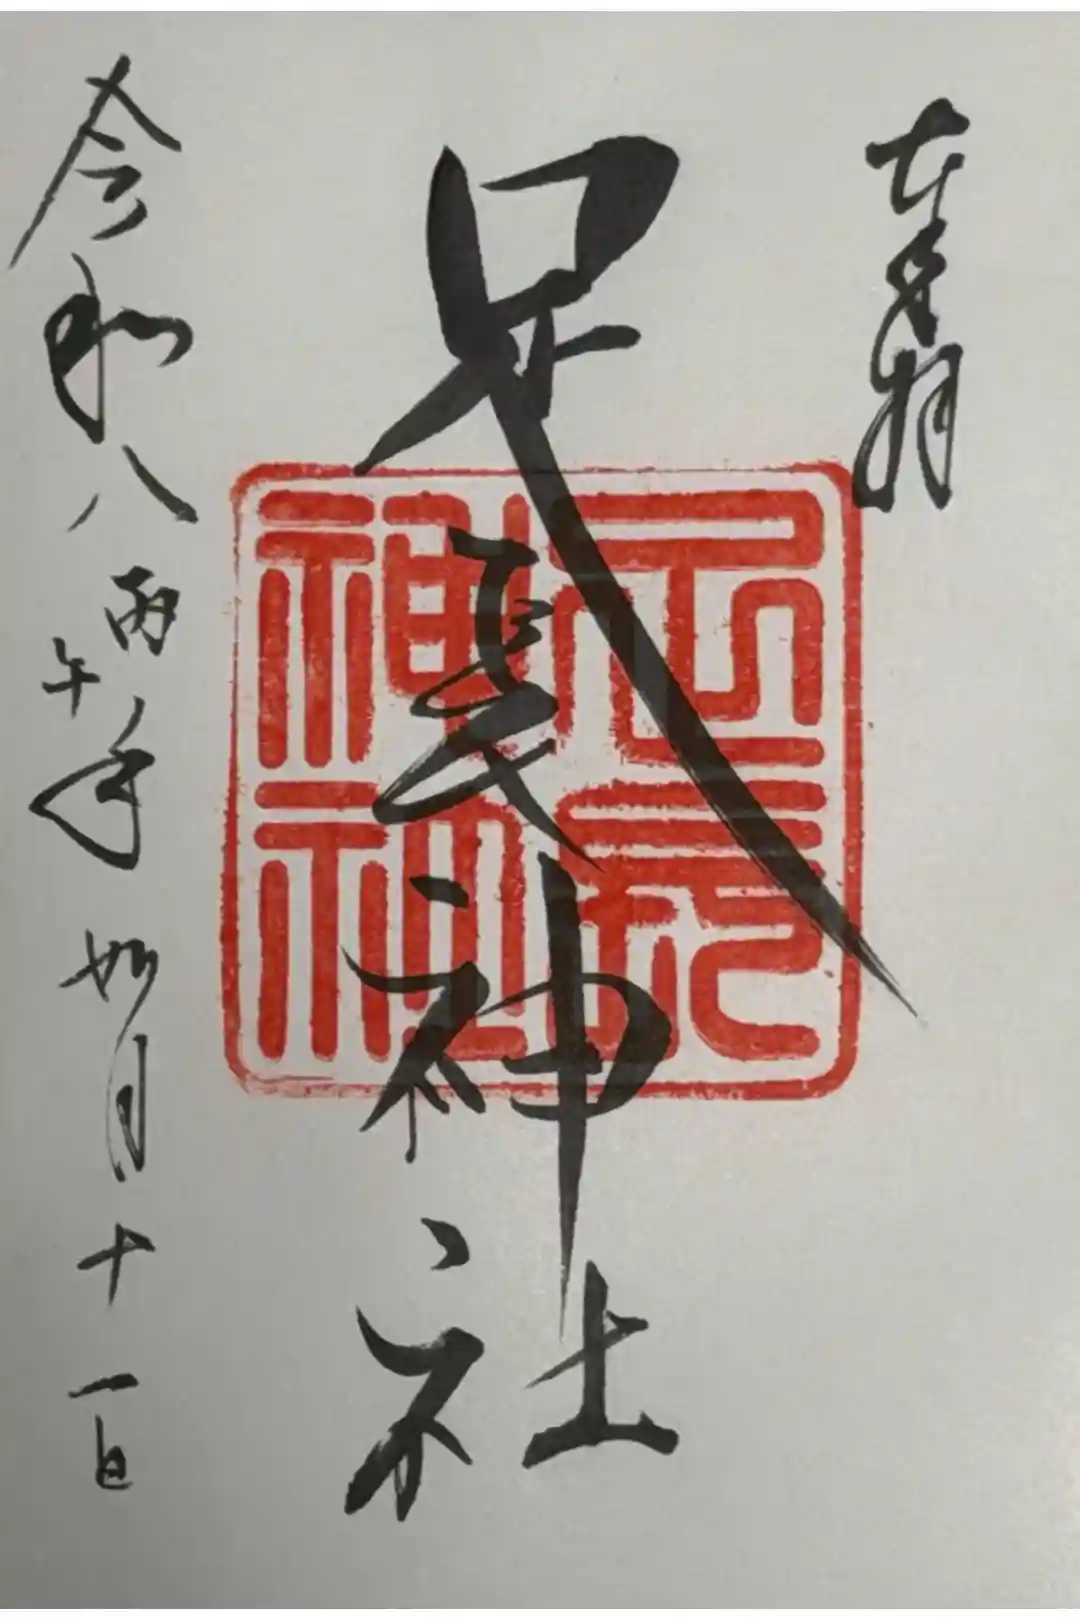 奉拝
足長神社
足長神社
令和八丙午年 如月十一日